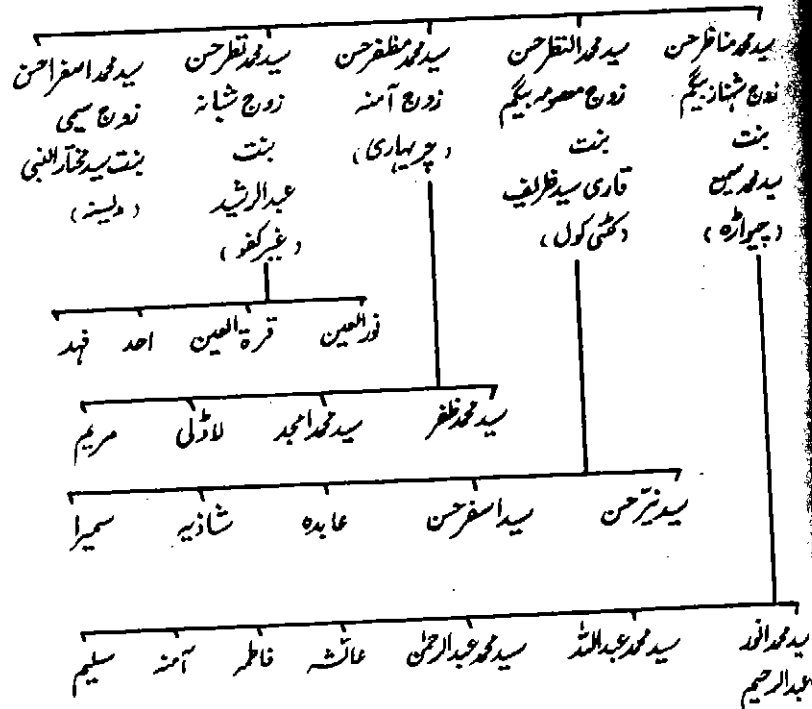 سید محمد مناظر حسن
زوج شہناز بیگم
بنت
سید محمد سمیع
(چیواڑہ)
سید محمد انتظر حسن
زوج معصومہ بیگم
بنت
قاری سید ظریف
(کٹی کول)
سید محمد مظفر حسن
زوج آمنہ
(چربہاری)
سید محمد نظر حسن
زوج شبانہ
بنت
عبدالرشید
(غیر کفو)
سید محمد اسفر احسن
زوج سیمی
بنت سید مختار النبی
(دیسنہ)
نورالعین قرۃ العین احد فہد
سید محمد ظفر سید محمد امجد لاڈلی مریم
سید نیّر حسن سید اسفر حسن عابدہ شاذیہ سمیرا
سید محمد عبداللہ سید محمد عبدالرحمٰن عائشہ فاطمہ آمنہ سلیم
عبدالرحیم